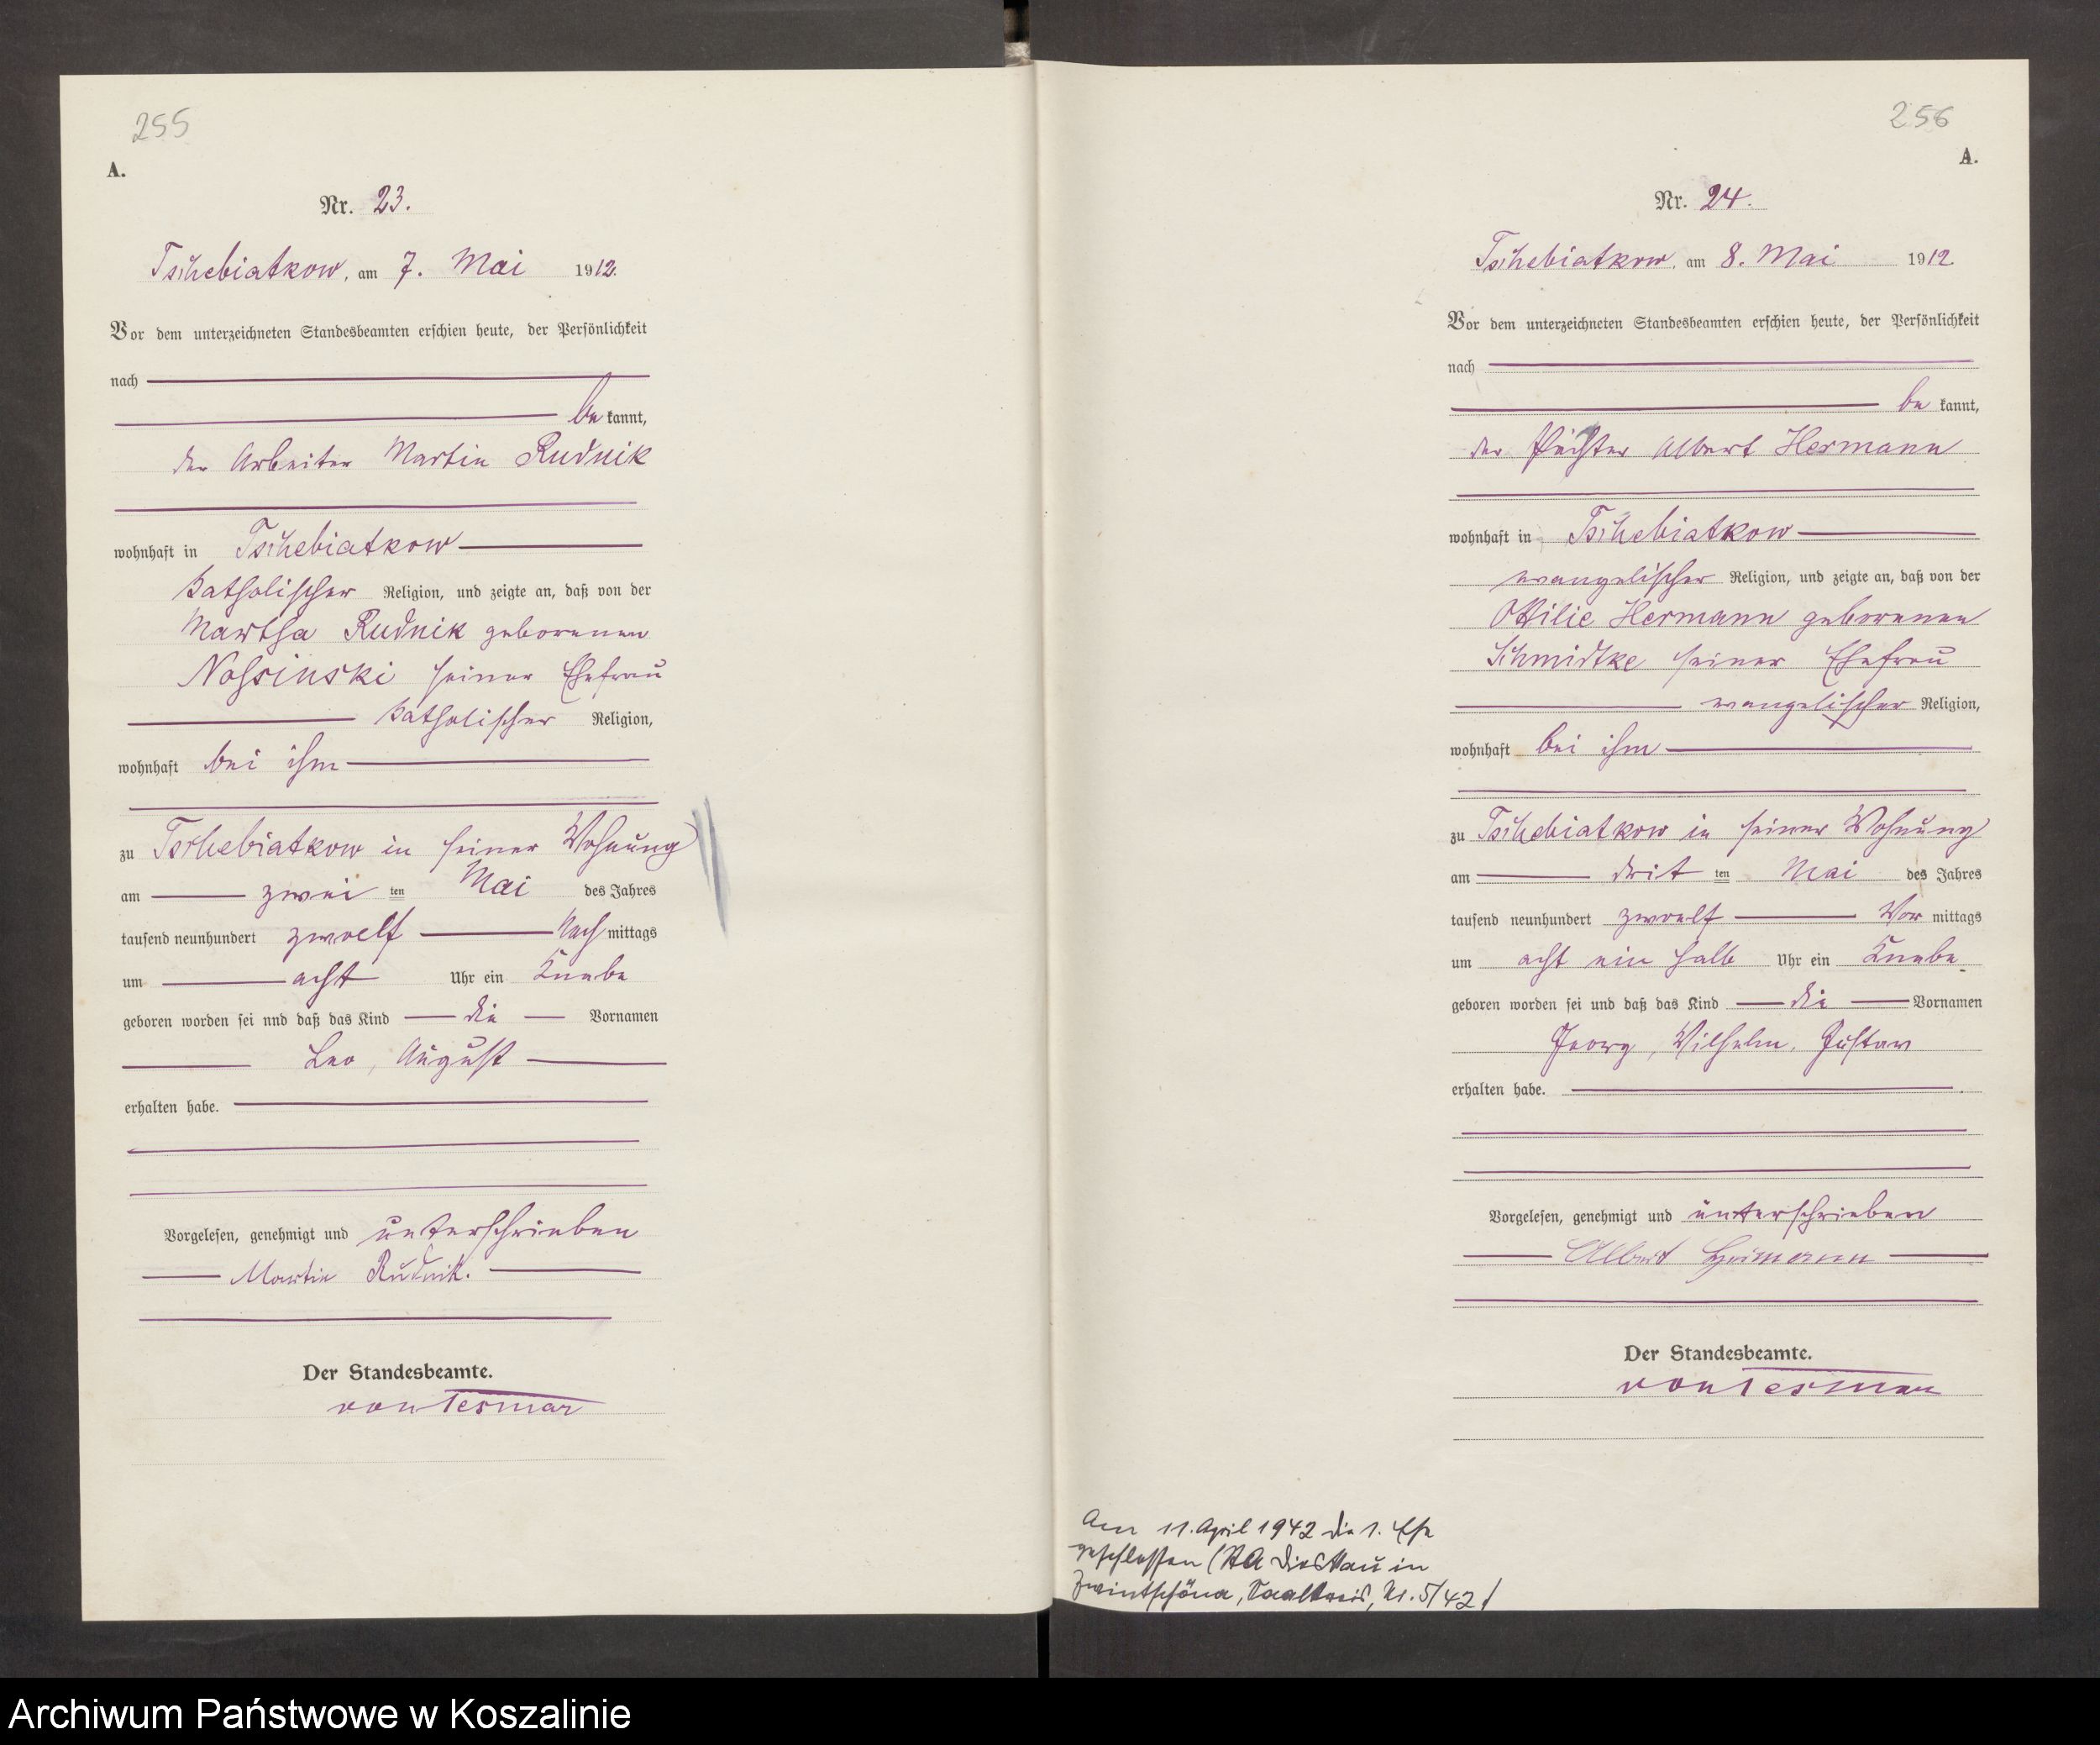 255
A.
Nr. 23.
Tschebiatkow, am 7. Mai 1912.
Vor dem unterzeichneten Standesbeamten erschien heute, der Persönlichkeit
nach
be kannt,
der Arbeiter Martin Rudnik
wohnhaft in Tschebiatkow
katholischer Religion, und zeigte an, daß von der
Martha Rudnik geborenen
Nossinski seiner Ehefrau
katholischer Religion,
wohnhaft bei ihm
zu Tschebiatkow in seiner Wohnung
am zwei ten Mai des Jahres
tausend neunhundert zwoelf Nach mittags
um acht Uhr ein Knabe
geboren worden sei nnd daß das Kind die Vornamen
Leo, August
erhalten habe.
Vorgelesen, genehmigt und unterschrieben
Martin Rudnik.
Der Standesbeamte.
von Tesmar
256
A.
Nr. 24.
Tschebiatkow, am 8. Mai 1912
Vor dem unterzeichneten Standesbeamten erschien heute, der Persönlichkeit
nach
be kannt,
der Pächter Albert Hermann
wohnhaft in Tschebiatkow
evangelischer Religion, und zeigte an, daß von der
Ottilie Hermann geborenen
Schmidtke seiner Ehefrau
evangelischer Religion,
wohnhaft bei ihm
zu Tschebiatkow in seiner Wohnung
am drit ten Mai des Jahres
tausend neunhundert zwoelf Vor mittags
um acht ein halb Uhr ein Knabe
geboren worden sei und daß das Kind die Vornamen
Georg, Wilhelm, Gustav
erhalten habe.
Vorgelesen, genehmigt und unterschrieben
Albert Hermann
Der Standesbeamte.
von Tesmar
Am 11. April 1942 die 1. Ehe
geschlossen (StA Dieskau in
Zwintschöna, Saalkreis, Nr. 5/42)
Archiwum Państwowe w Koszalinie